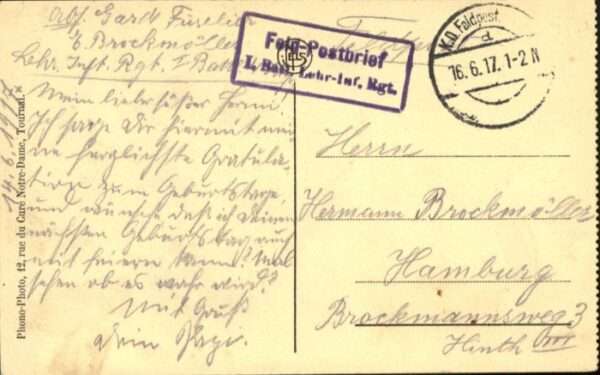 Abs. Garde Füselier
E. Brockmöller
Lehr. Inft. Rgt. I Bat
14. 6. 1917
Mein lieber süßer Hermi!
Ich sage Dir hiermit mei-
ne herzlichste Gratula-
tion zum Geburtstage
und wünsche daß ich Deinen
nächsten Geburtstag auch
mit feiern kann! Mal
sehen ob es wahr wird?
Mit Gruß
Dein Papi.
Phono-Photo, 12, rue du Curé Notre-Dame, Tournai.
Feldpost
Feld-Postbrief
I. Batl. Lehr-Inf. Rgt.
K.D. Feldpost
d
16.6.17. 1-2 N
Herrn
Hermann Brockmöller
Hamburg
Brockmannsweg 3
Hinth